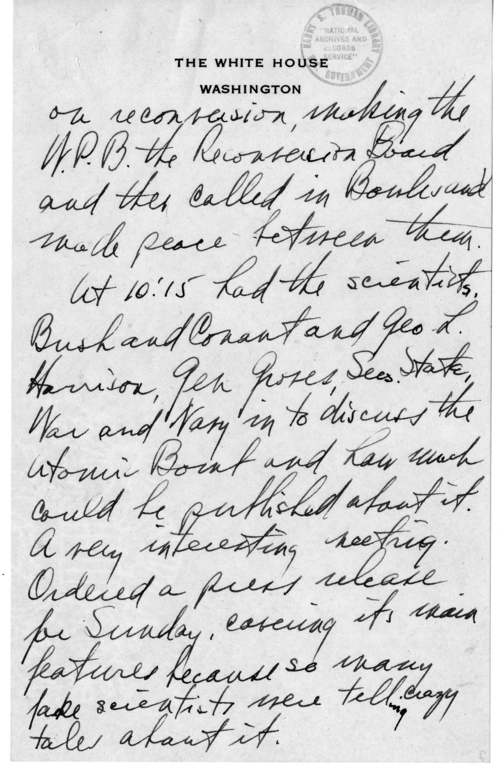 HARRY S. TRUMAN LIBRARY
"NATIONAL
ARCHIVES AND
RECORDS
SERVICE"
GOVERNMENT
THE WHITE HOUSE
WASHINGTON
on reconversion, making the
W.P.B. the Reconversion Board
and then called in Bowles and
made peace between them.
At 10:15 had the scientists,
Bush and Conant and Geo L.
Harrison, Gen Groves, Secs. State,
War and Navy in to discuss the
Atomic Bomb and how much
could be published about it.
A very interesting meeting.
Ordered a press release
for Sunday, covering its main
features because so many
fake scientists were telling crazy
tales about it.